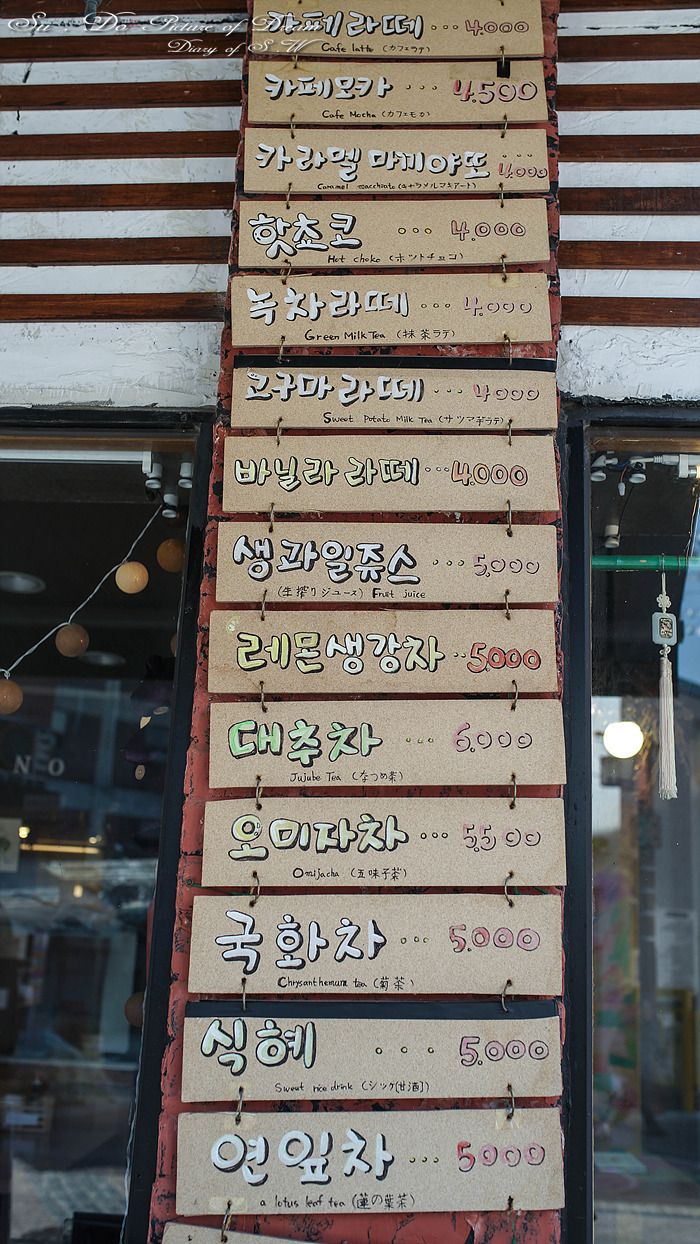 Su Do Picture of Dream
Diary of S.W
카페라떼 4.000
Cafe latte (カフェラテ)
카페모카 ... 4.500
Cafe Mocha (カフェモカ)
카라멜 마끼야또 ... 4.000
Caramel macchiato (キャラメルマキアート)
핫쵸코 ... 4.000
Hot choko (ホットチョコ)
녹차라떼 ... 4.000
Green Milk Tea (抹茶ラテ)
고구마라떼 ... 4.000
Sweet Potato Milk Tea (サツマギラテ)
바닐라 라떼 ... 4.000
생과일쥬스 ... 5.000
(生搾りジュース) Fruit juice
레몬생강차 .. 5.000
대추차 ... 6.000
Jujube Tea (なつめ茶)
NO
오미자차 ... 5.500
Omijacha (五味子茶)
국화차 ... 5.000
Chrysanthemum tea (菊茶)
식혜 ... 5.000
Sweet rice drink (シッケ[甘酒])
연잎차 ... 5000
a lotus leaf tea (蓮の葉茶)